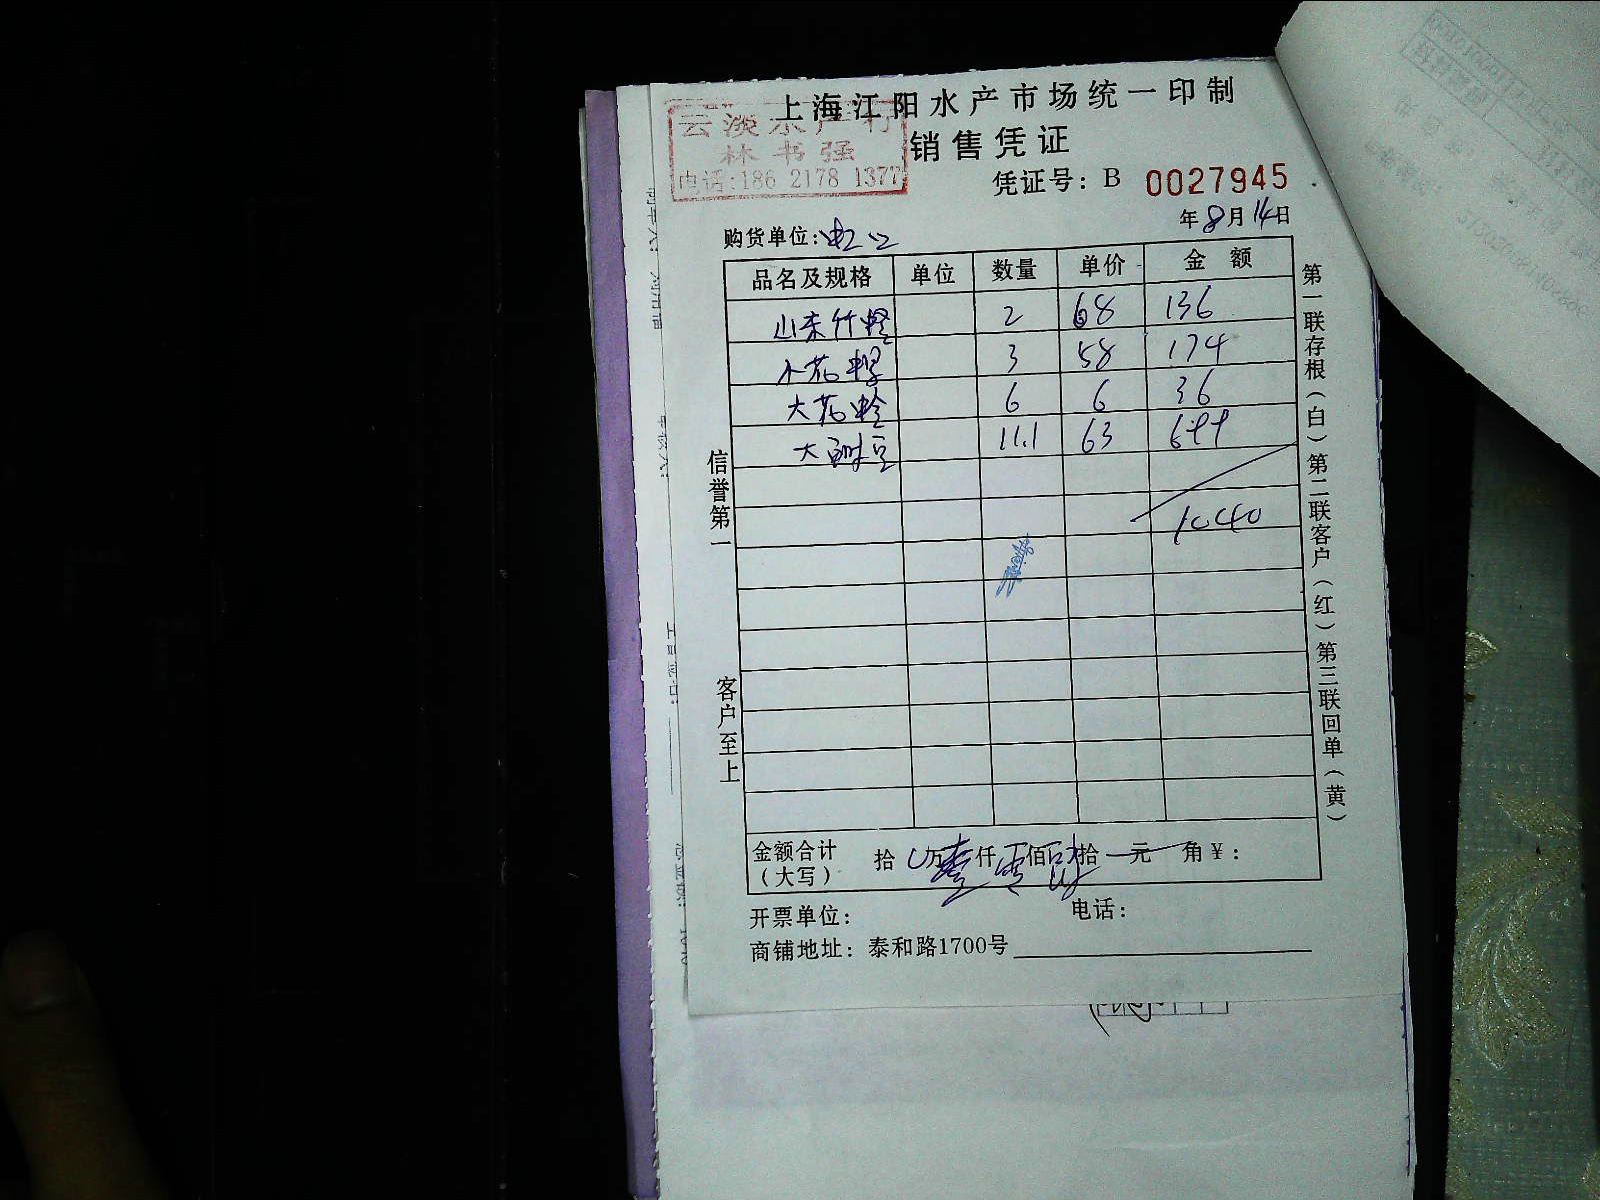 上海江阳水产市场统一印制
云淡水产行
林书强
电话:186 2178 1377
销售凭证
凭证号: B 0027945
年8月14日
购货单位:
品名及规格 单位 数量 单价 金 额
山东竹蛏 2 68 136
小花 3 58 174
大花蛤 6 6 36
大 11.1 63 699
1040
信誉第一
客户至上
第一联存根(白)第二联客户(红)第三联回单(黄)
金额合计
(大写)
拾 万壹仟零佰肆拾 元 角¥:
开票单位: 电话:
商铺地址: 泰和路1700号